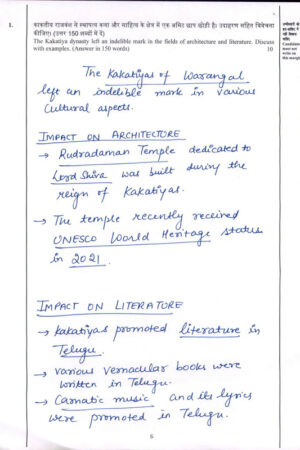 1.
काकतीय राजवंश ने स्थापत्य कला और साहित्य के क्षेत्र में एक अमिट छाप छोड़ी है। उदाहरण सहित विवेचना
कीजिए। (उत्तर 150 शब्दों में दें)
The Kakatiya dynasty left an indelible mark in the fields of architecture and literature. Discuss
with examples. (Answer in 150 words) 10
The Kakatiyas of Warangal
left an indelible mark in various
Cultural aspects.
IMPACT ON ARCHITECTURE
→ Rudradaman Temple dedicated to
Lord Shiva was built during the
reign of Kakatiyas.
→ The temple recently received
UNESCO World Heritage status
in 2021.
IMPACT ON LITERATURE
→ Kakatiyas promoted literature in
Telugu.
→ Various vernacular books were
written in Telugu.
→ Carnatic music and its lyrics
were promoted in Telugu.
6